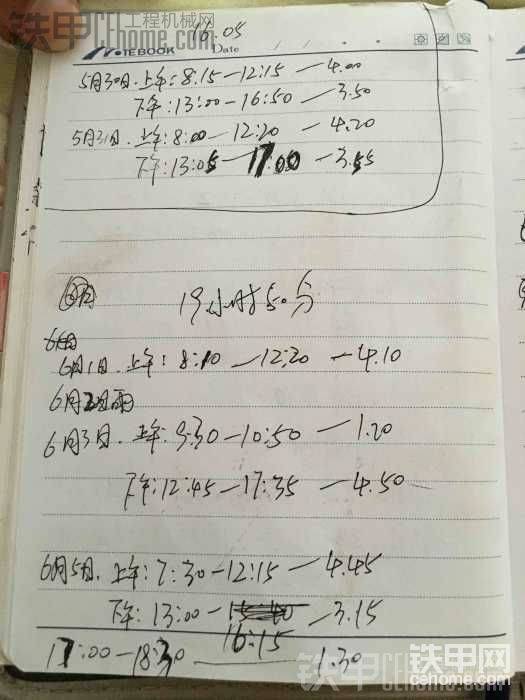 铁甲 工程机械网
NOTEBOOK 16.05 Date
5月30日.上午:8:15—12:15—4.00
下午:13:00—16:50—3.50
5月31日.上午:8:00—12:20—4.20
下午:13:05—17:00—3.55
19小时50分
6月1日.上午:8:10—12:20—4.10
6月2日雨
6月3日.上午:9:30—10:50—1.20
下午:12:45—17:35—4.50
6月5日.上午:7:30—12:15—4.45
下午:13:00—16:15—3.15
17:00—18:30—1.30
铁甲网
cehome.com
铁甲 工程机械网